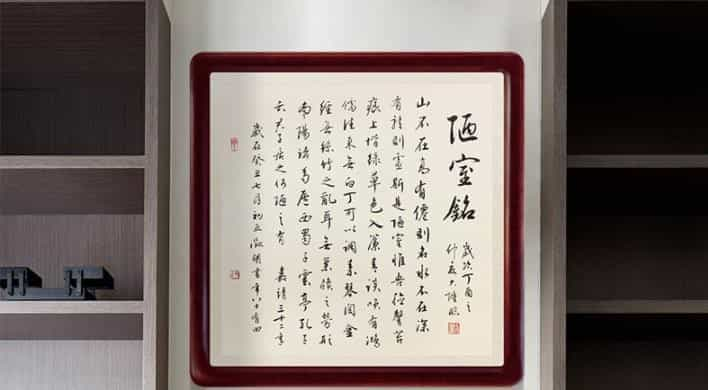 陋室銘
歲次丁酉之
仲夏
山不在高有僊則名水不在深
有龍則靈斯是陋室惟吾德馨苔
痕上堦綠草色入簾青談笑有鴻
儒往來無白丁可以調素琴閱金
經無絲竹之亂耳無案牘之勞形
南陽諸葛廬西蜀子雲亭孔子
云何陋之有 嘉靖三十二年
歲在癸丑七月初五徵明書年八十有四